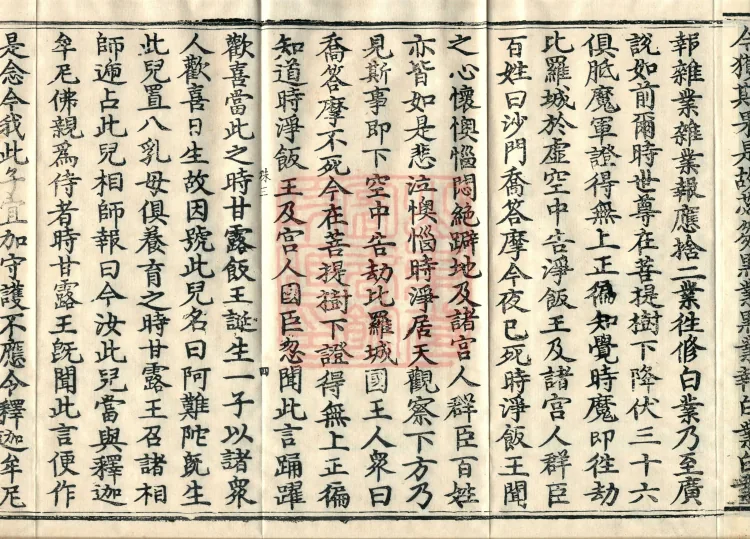 報雜業雜業報應捨二業往修白業乃至廣
說如前爾時世尊在菩提樹下降伏三十六
俱胝魔軍證得無上正徧知覺時魔即往劫
比羅城於虛空中告淨飯王及諸宮人群臣
百姓曰沙門喬答摩今夜已死時淨飯王聞
之心懷懊惱悶絕躃地及諸宮人群臣百姓
亦皆如是悲泣懊惱時淨居天觀察下方乃
見斯事即下空中告劫比羅城國王人衆曰
喬答摩不死今在菩提樹下證得無上正徧
知道時淨飯王及宮人國臣忽聞此言踊躍
歡喜當此之時甘露飯王誕生一子以諸衆
人歡喜日生故因號此兒名曰阿難陀旣生
此兒置八乳母俱養育之時甘露王召諸相
師遍占此兒相師報曰今汝此兒當與釋迦
牟尼佛親爲侍者時甘露王旣聞此言便作
是念今我此子宜加守護不應令釋迦牟尼